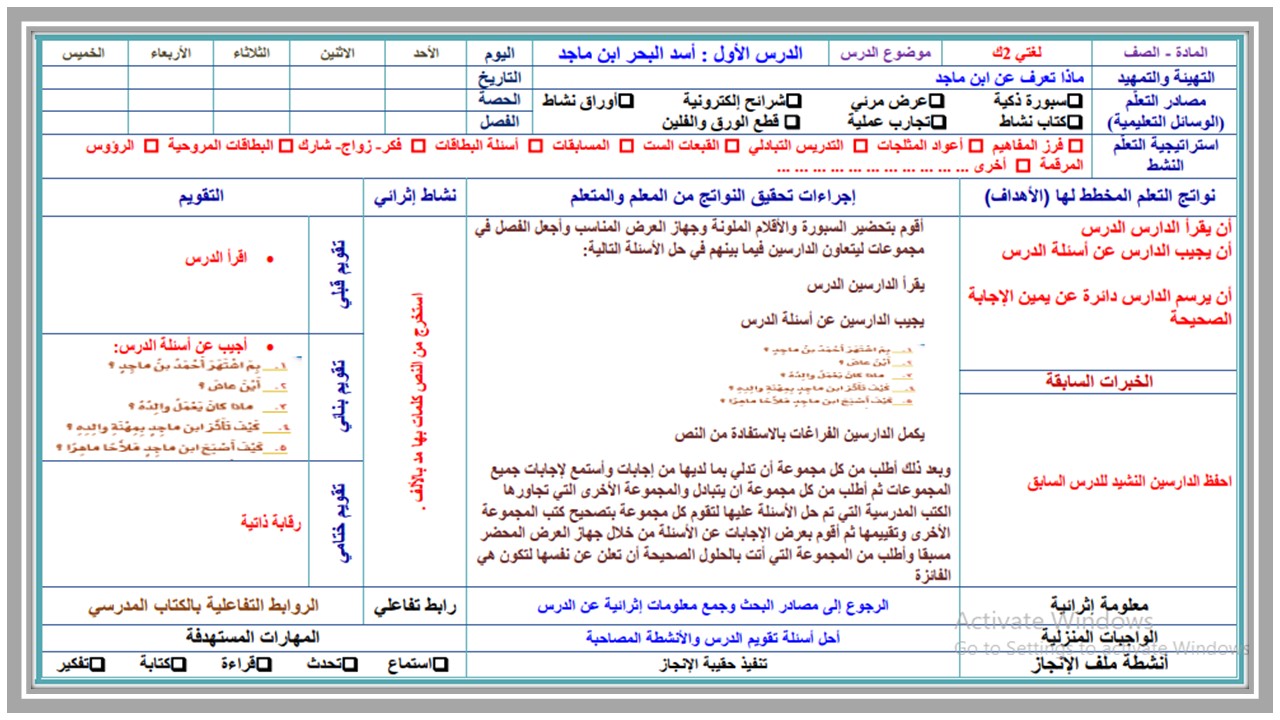 المادة - الصف	لغتي 2ك	موضوع الدرس	الدرس الأول : أسد البحر ابن ماجد	اليوم	الأحد	الاثنين	الثلاثاء	الأربعاء	الخميس
التهيئة والتمهيد	ماذا تعرف عن ابن ماجد	التاريخ
مصادر التعلّم
(الوسائل التعليمية)
❑سبورة ذكية ❑عرض مرئي ❑شرائح إلكترونية ❑أوراق نشاط
❑كتاب نشاط ❑تجارب عملية ❑ قطع الورق والفلين
الحصة
الفصل
استراتيجية التعلّم
النشط
❑ فرز المفاهيم ❑ أعواد المثلجات ❑ التدريس التبادلي ❑ القبعات الست ❑ المسابقات ❑ أسئلة البطاقات ❑ فكر- زواج- شارك ❑ البطاقات المروحية ❑ الرؤوس
المرقمة ❑ أخرى ... ... ... ... ... ... ... ... ... ... ...
نواتج التعلم المخطط لها (الأهداف)	إجراءات تحقيق النواتج من المعلم والمتعلم	نشاط إثرائي	التقويم
أن يقرأ الدارس الدرس
أن يجيب الدارس عن أسئلة الدرس
أن يرسم الدارس دائرة عن يمين الإجابة
الصحيحة
الخبرات السابقة
احفظ الدارسين النشيد للدرس السابق
أقوم بتحضير السبورة والأقلام الملونة وجهاز العرض المناسب وأجعل الفصل في
مجموعات ليتعاون الدارسين فيما بينهم في حل الأسئلة التالية:
يقرأ الدارسين الدرس
يجيب الدارسين عن أسئلة الدرس
١. بِمَ اشْتَهَرَ أَحْمَدُ بنُ ماجِدٍ ؟
٢. أَيْنَ عاشَ ؟
٣. ماذا كانَ يَعْمَلُ والِدُهُ ؟
٤. كَيْفَ تَأَثَّرَ ابن ماجِدٍ بِمِهْنَةِ والِدِهِ ؟
٥. كَيْفَ أَصْبَحَ ابن ماجِدٍ مَلّاحًا ماهِرًا ؟
يكمل الدارسين الفراغات بالاستفادة من النص
وبعد ذلك أطلب من كل مجموعة أن تدلي بما لديها من إجابات وأستمع لإجابات جميع
المجموعات ثم أطلب من كل مجموعة ان يتبادل والمجموعة الأخرى التي تجاورها
الكتب المدرسية التي تم حل الأسئلة عليها لتقوم كل مجموعة بتصحيح كتب المجموعة
الأخرى وتقييمها ثم أقوم بعرض الإجابات عن الأسئلة من خلال جهاز العرض المحضر
مسبقا وأطلب من المجموعة التي أتت بالحلول الصحيحة أن تعلن عن نفسها لتكون هي
الفائزة
استخرج من النص كلمات بها مد بالألف .
تقويم قبلي
• اقرأ الدرس
تقويم بنائي
• أجيب عن أسئلة الدرس:
١. بِمَ اشْتَهَرَ أَحْمَدُ بنُ ماجِدٍ ؟
٢. أَيْنَ عاشَ ؟
٣. ماذا كانَ يَعْمَلُ والِدُهُ ؟
٤. كَيْفَ تَأَثَّرَ ابن ماجِدٍ بِمِهْنَةِ والِدِهِ ؟
٥. كَيْفَ أَصْبَحَ ابن ماجِدٍ مَلّاحًا ماهِرًا ؟
تقويم ختامي
رقابة ذاتية
معلومة إثرائية	الرجوع إلى مصادر البحث وجمع معلومات إثرائية عن الدرس	رابط تفاعلي	الروابط التفاعلية بالكتاب المدرسي
الواجبات المنزلية	أحل أسئلة تقويم الدرس والأنشطة المصاحبة	المهارات المستهدفة
أنشطة ملف الإنجاز	تنفيذ حقيبة الإنجاز	❑استماع ❑تحدث ❑قراءة ❑كتابة ❑تفكير
Activate Windows
Go to Settings to activate Windows